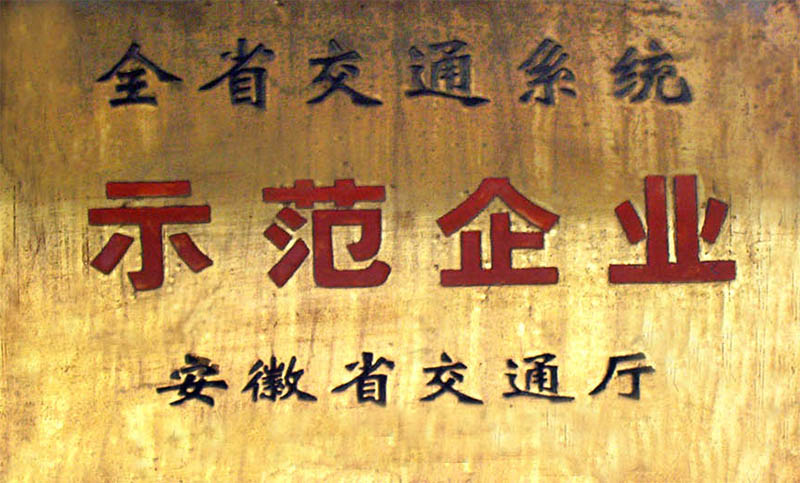 全省交通系统
示范企业
安徽省交通厅